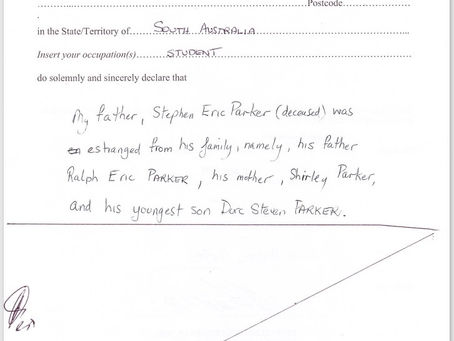 Postcode
in the State/Territory of SOUTH AUSTRALIA
Insert your occupation(s) STUDENT
do solemnly and sincerely declare that
My father, Stephen Eric Parker (deceased) was
estranged from his family, namely, his father
Ralph Eric PARKER, his mother, Shirley Parker,
and his youngest son Steven PARKER.